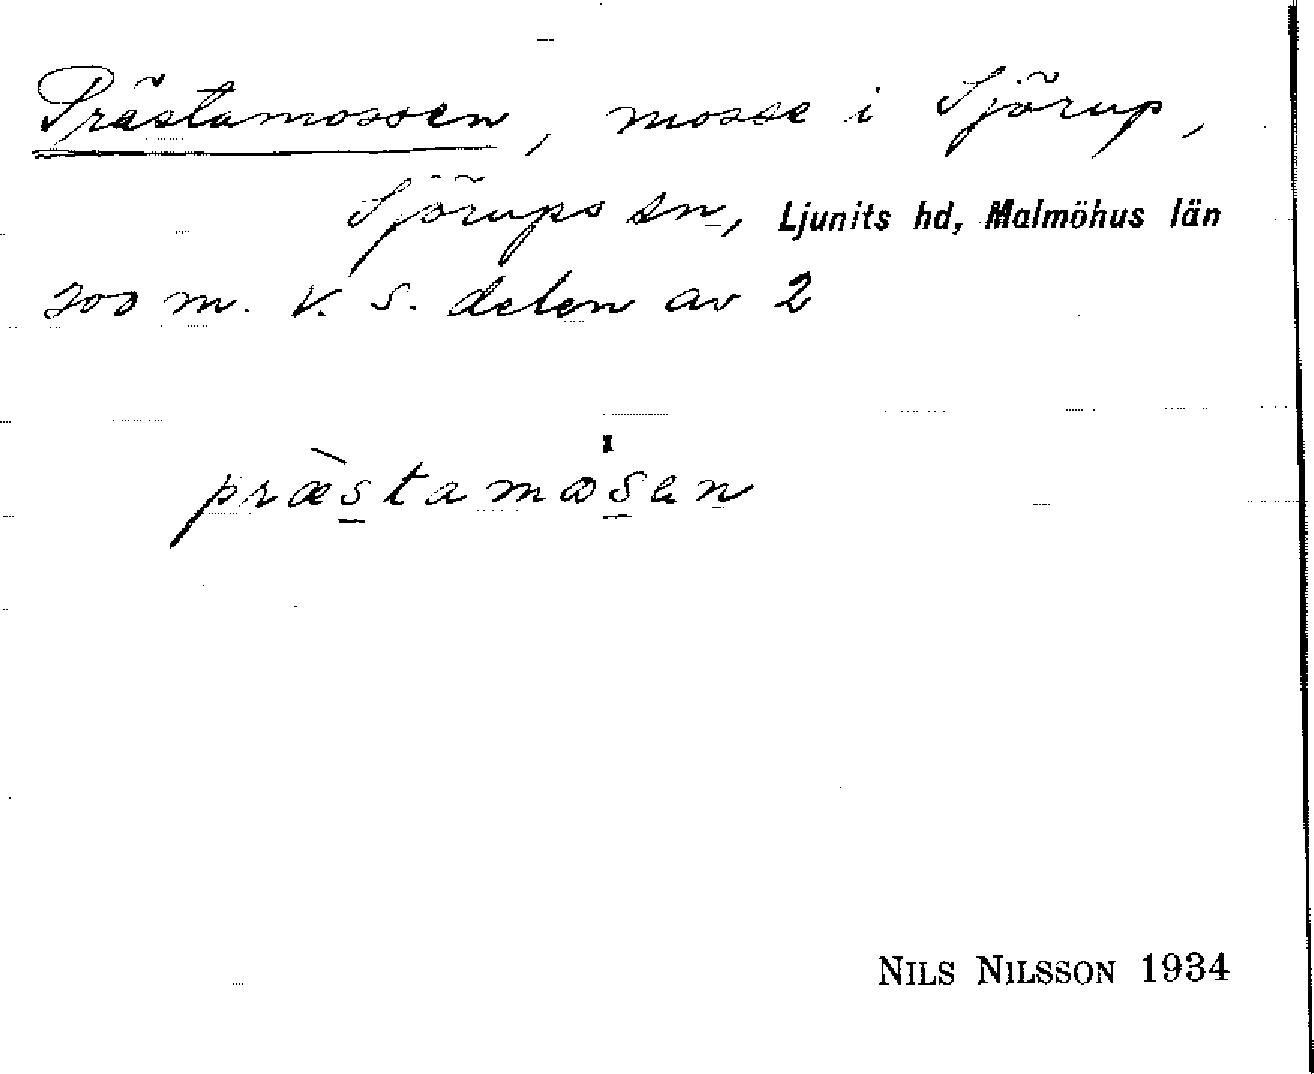 Prästamossen, mosse i Sjörup,
Sjörups sn, Ljunits hd, Malmöhus län
200 m. V. S. delen av 2
præ̀stamosen
NILS NILSSON 1934